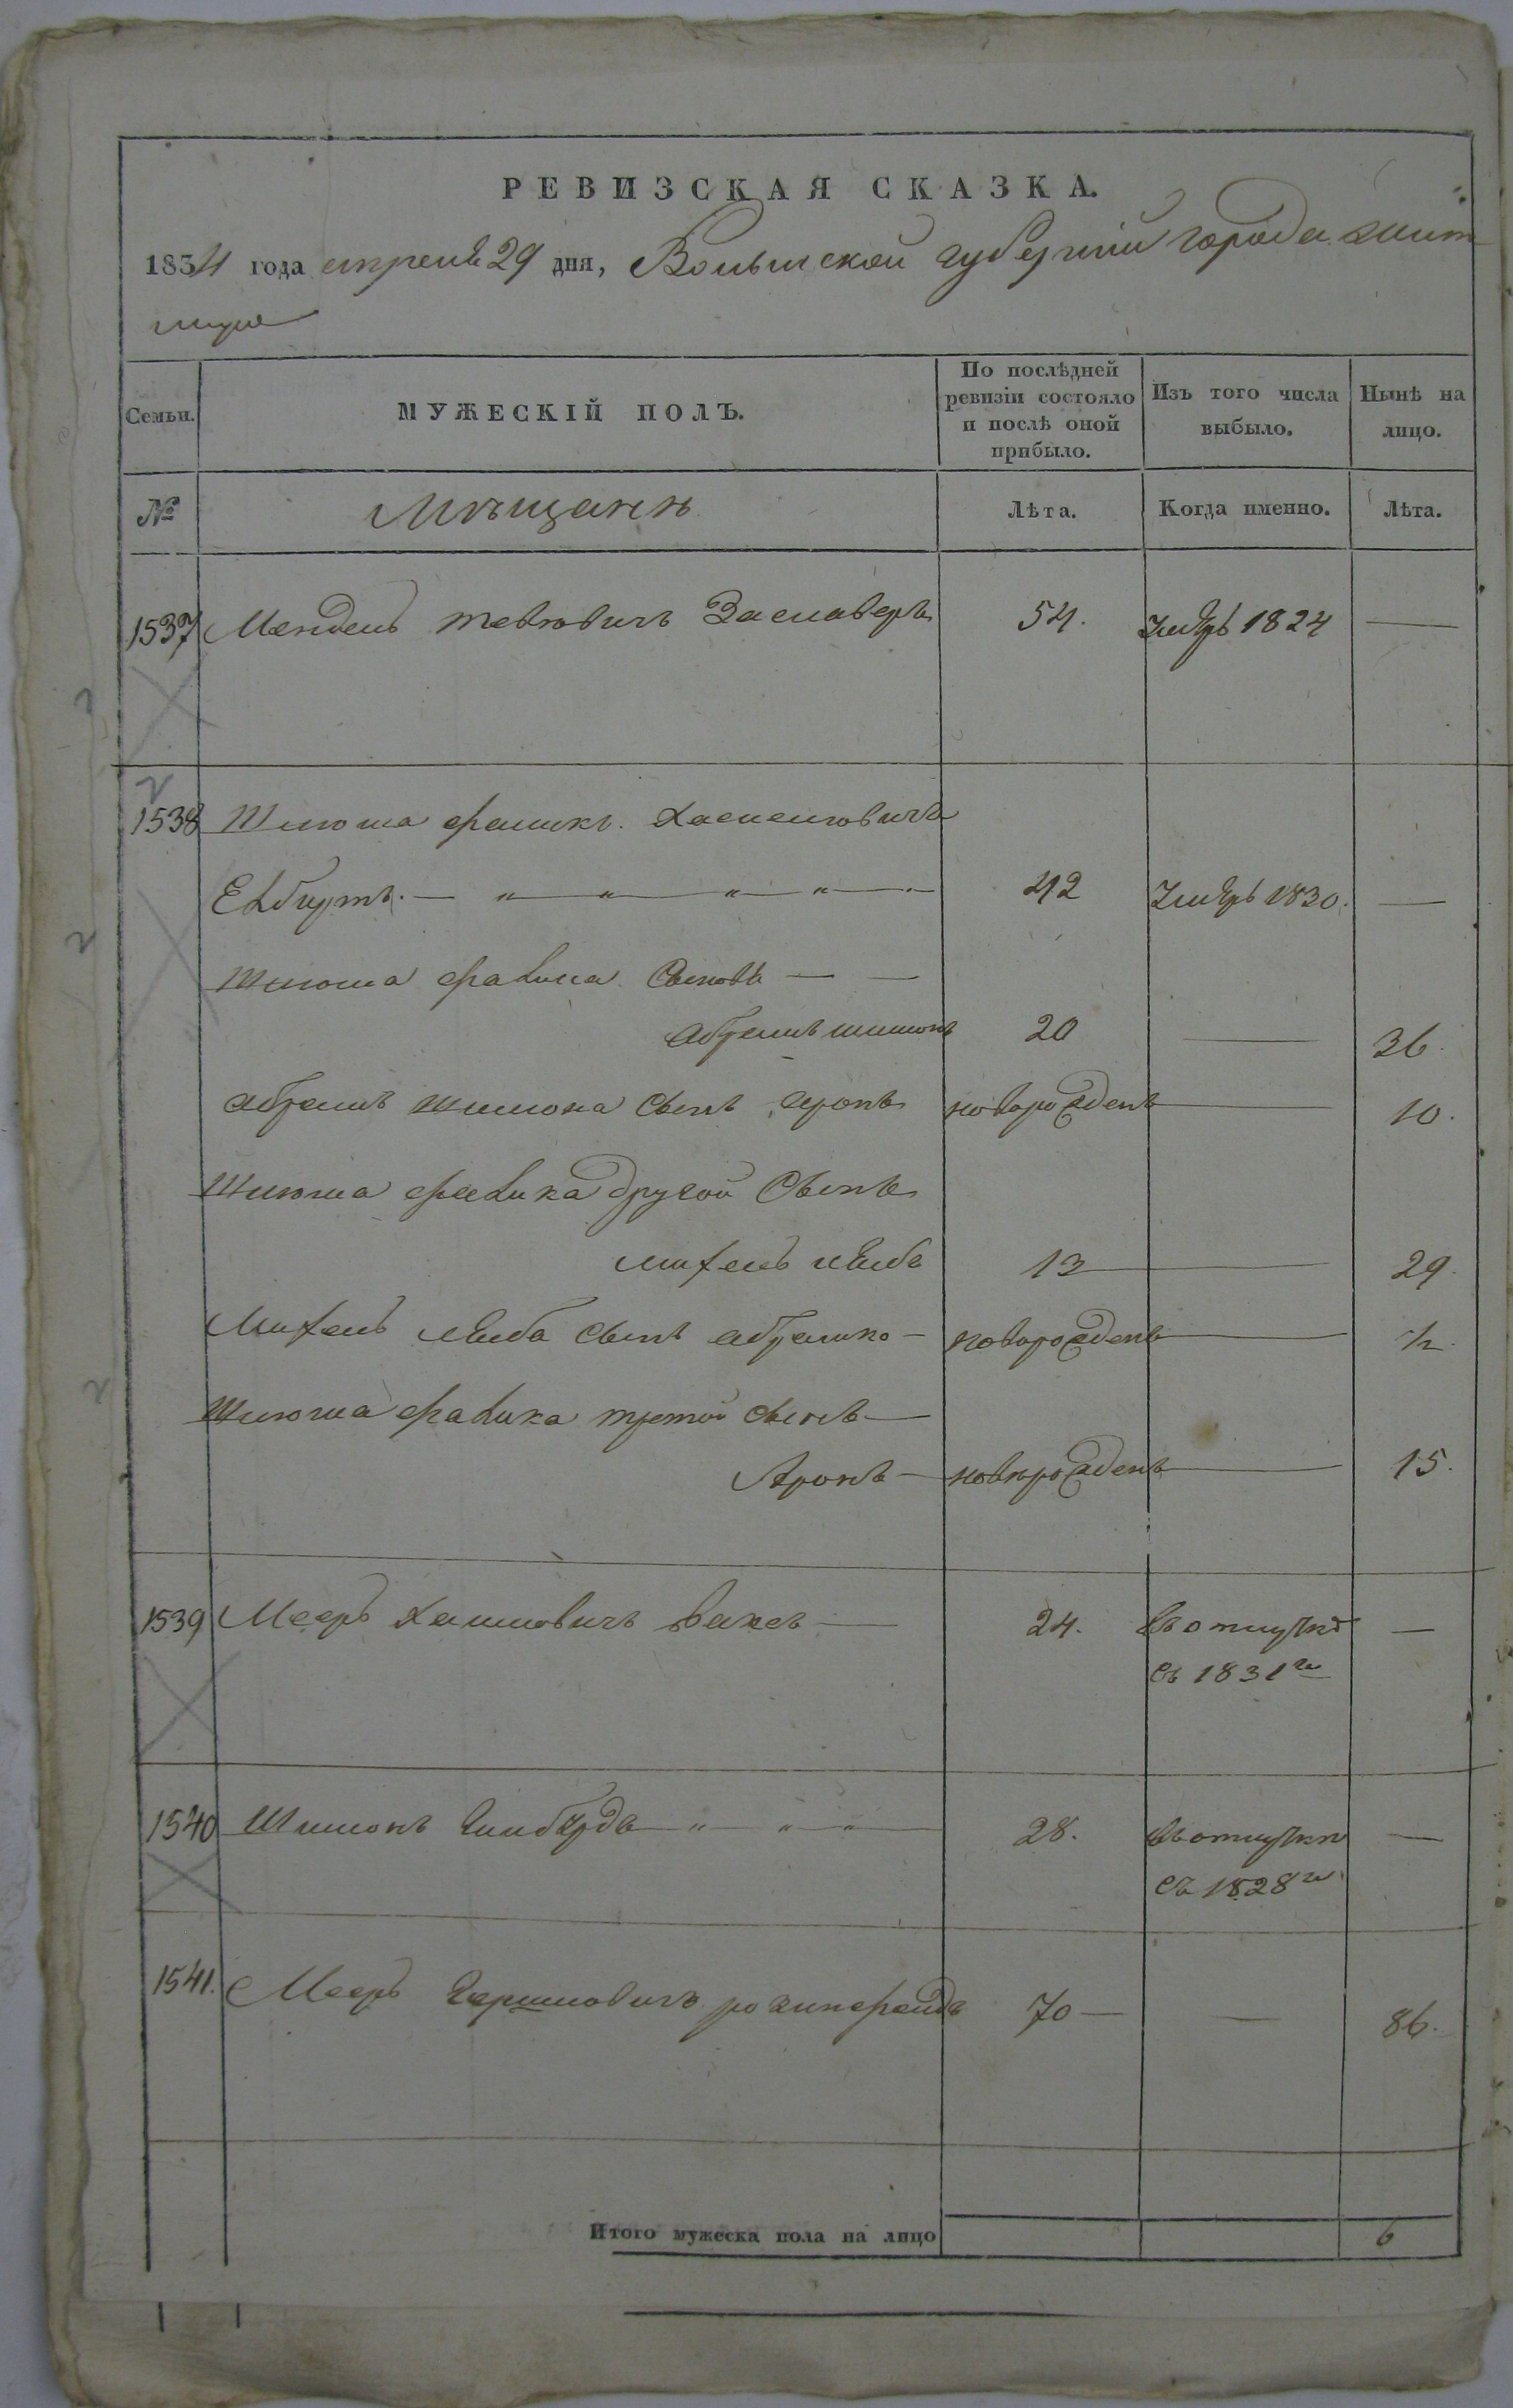 РЕВИЗСКАЯ СКАЗКА.
1834 года апреля 29 дня, Волынской губернии города Жито
мира
Семьи. МУЖЕСКІЙ ПОЛЪ. По послѣдней ревизіи состояло и послѣ оной прибыло. Изъ того числа выбыло. Нынѣ на лицо.
№ Мѣщанѣ Лѣта. Когда именно. Лѣта.
1537 Мендель Тевювичъ Заславеръ 54. 1824 —
2
1538 Шлюма Хаскелювичъ
42 1830. —
Шлюма Сыновъ — —
Абрамъ Шимонъ 20 — 36.
Абрамъ Шимона сынъ Аронъ новорожденъ — 10.
Шлюма другой Сынъ
Михель Лейба 13 — 29.
Михель Лейба сынъ Абрамко — новорожденъ — ½.
Шлюма третий сынъ —
Аронъ — новорожденъ — 15.
1539 Мееръ Хаимовичъ Ваксъ — 24. въ отлучкѣ —
съ 1831го
1540 Шимонъ 28. въ отлучкѣ —
съ 1828го
1541. Мееръ Гершковичъ 70 — — 86.
Итого мужеска пола на лицо 6